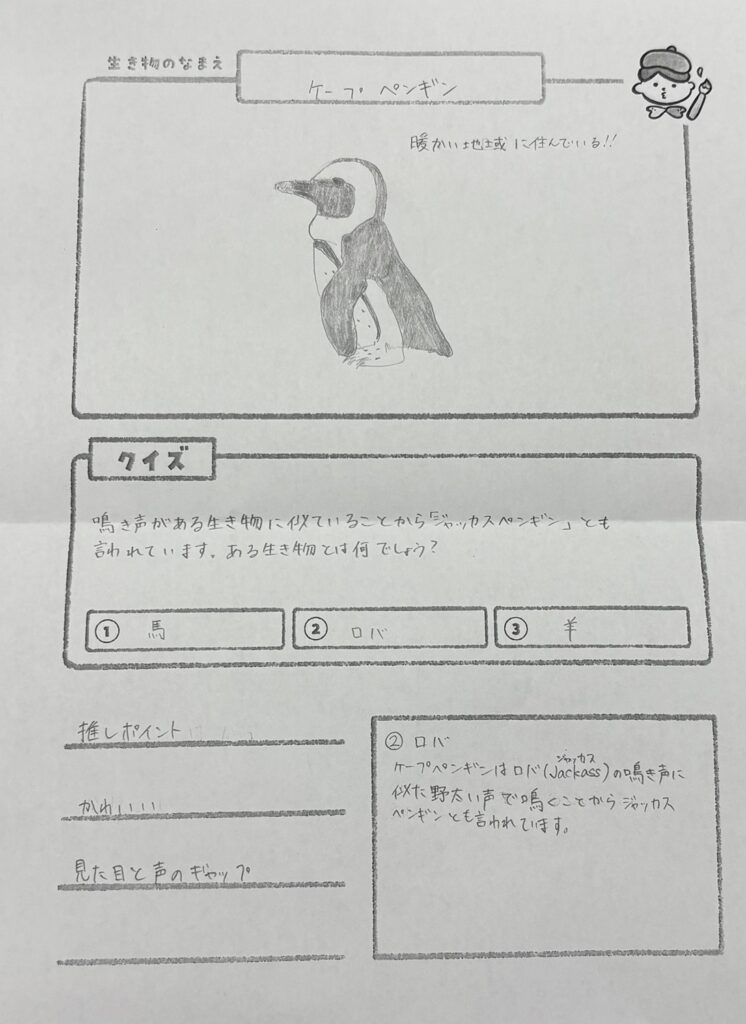 生き物のなまえ
ケープペンギン
暖かい地域に住んでいる!!
クイズ
鳴き声がある生き物に似ていることから「ジャッカスペンギン」とも
言われています。ある生き物とは何でしょう?
① 馬
② ロバ
③ 羊
推しポイント
かわいい
見た目と声のギャップ
② ロバ
ジャッカス
ケープペンギンはロバ(Jackass)の鳴き声に
似た野太い声で鳴くことからジャッカス
ペンギンとも言われています。